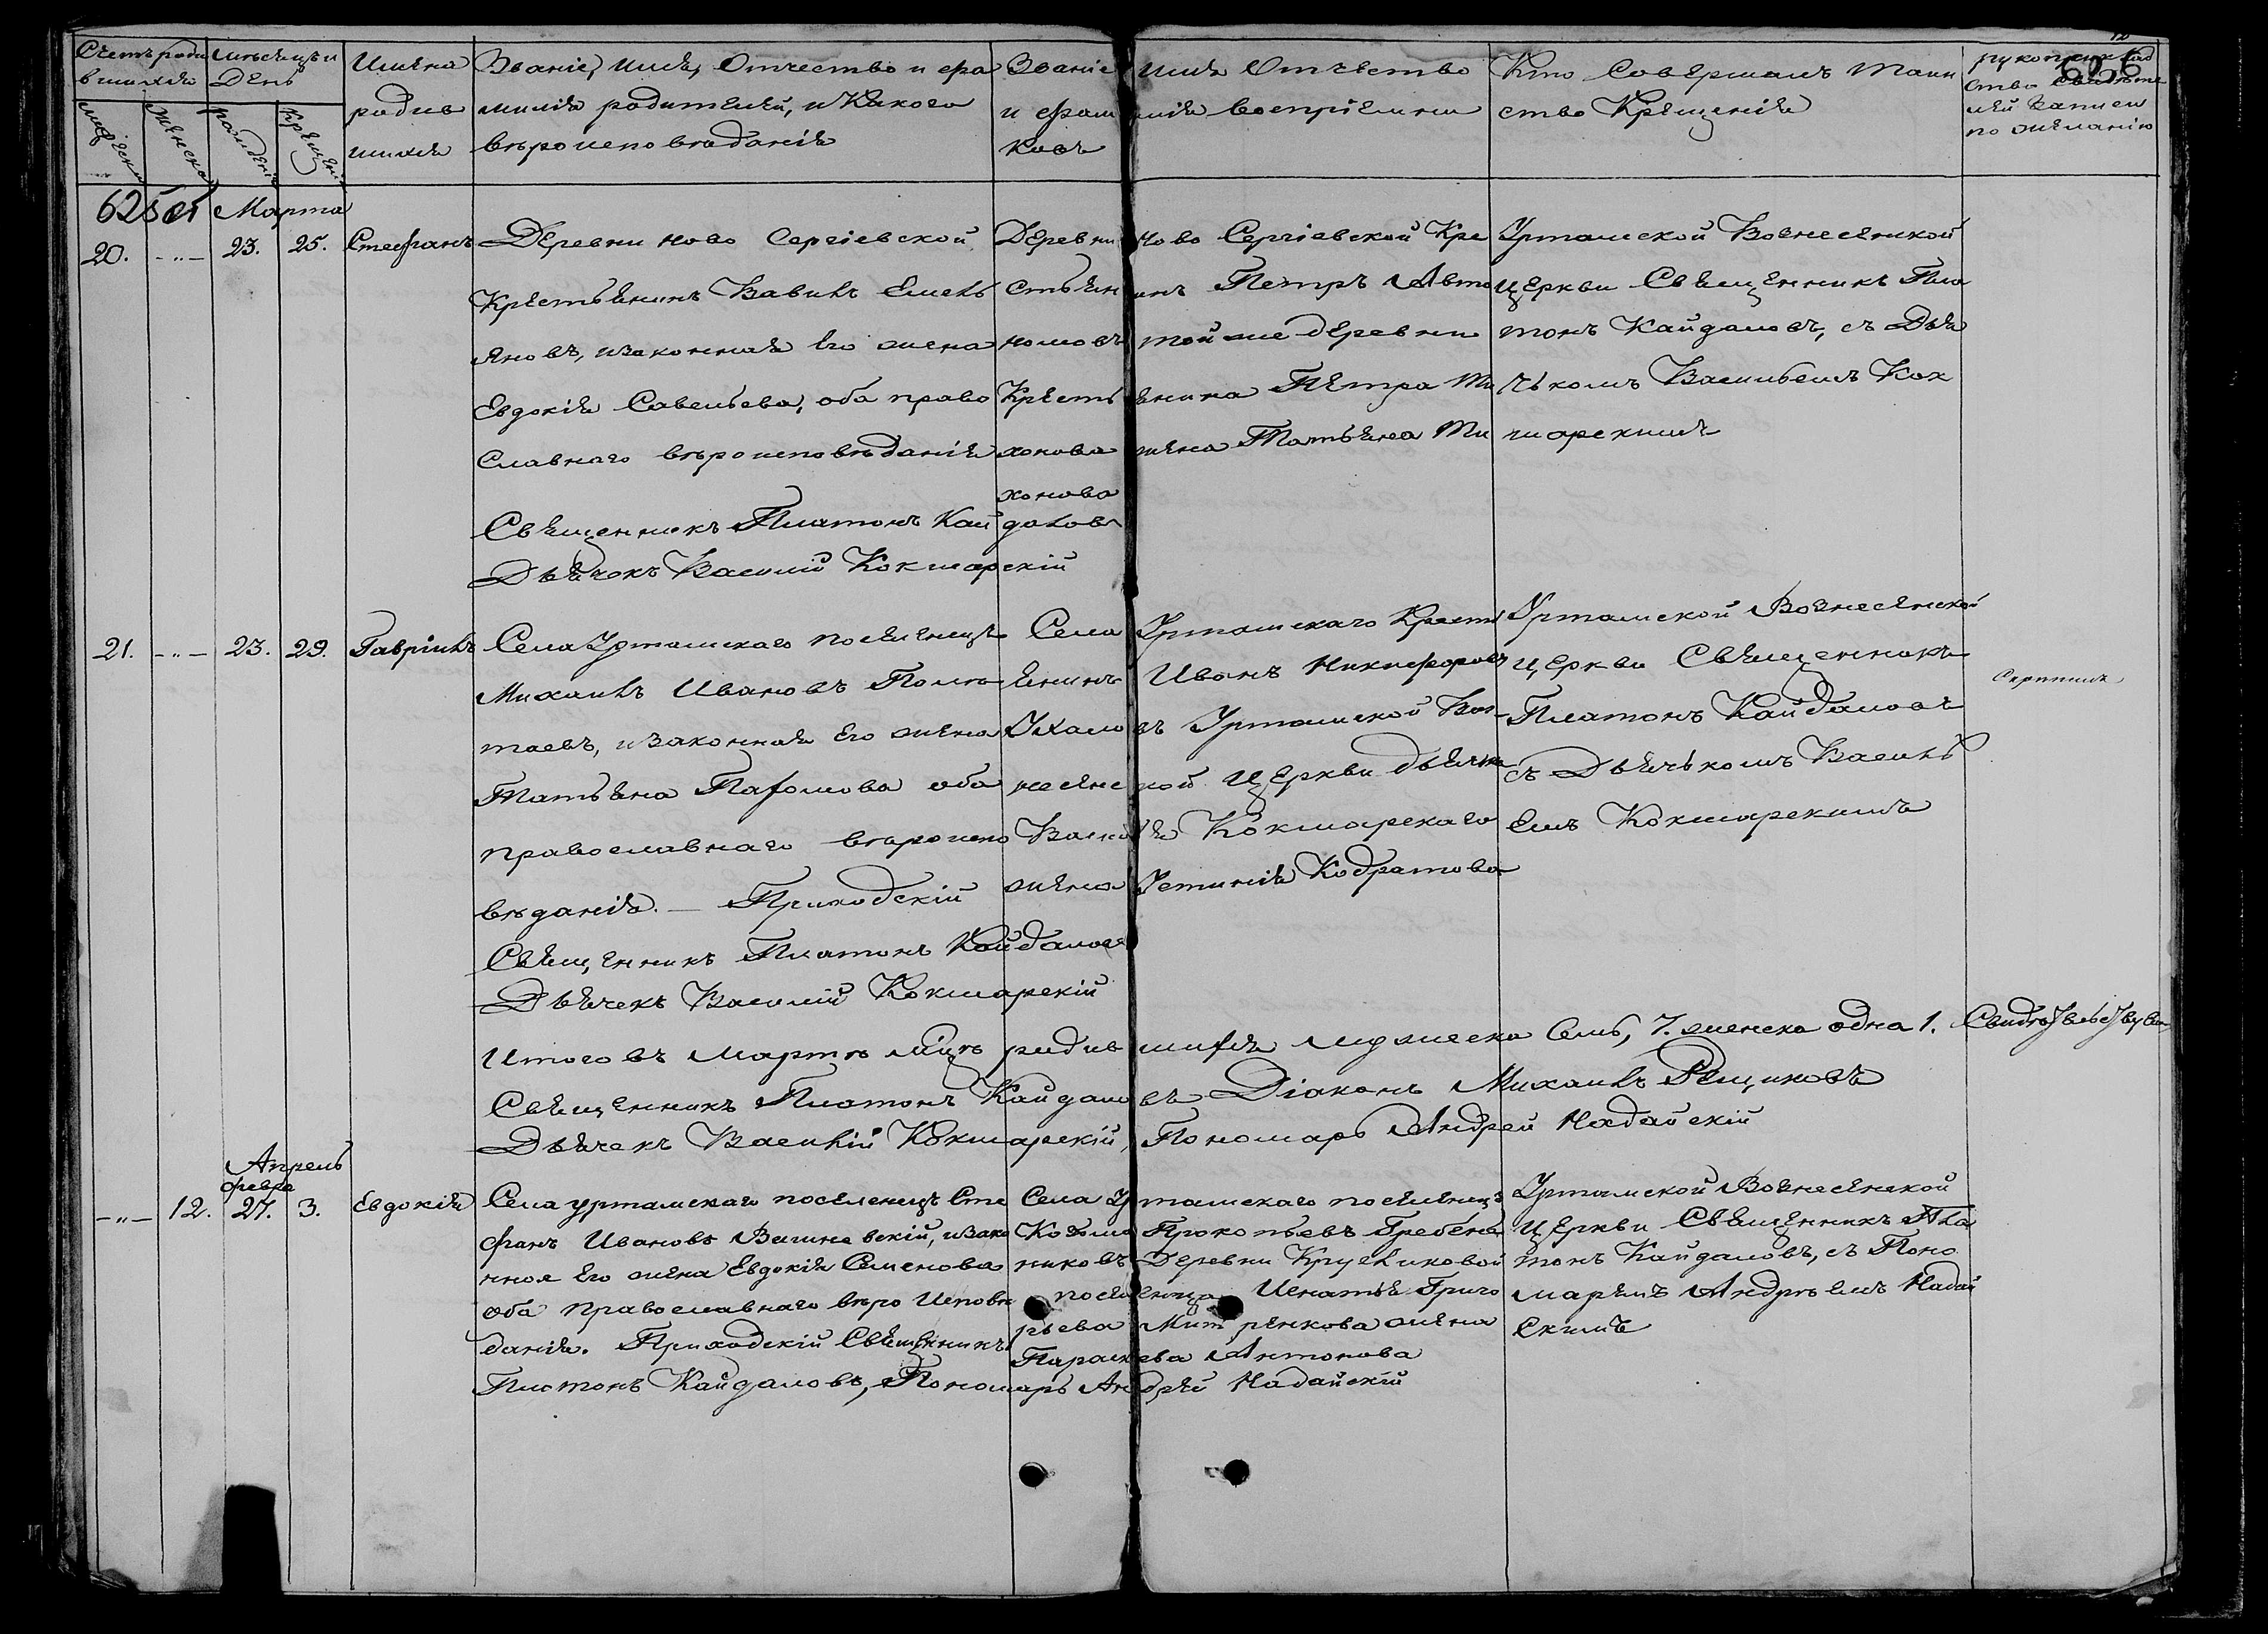 Счетъ роди
вшихся
мѣсяцъ и
День
Имена
родив
шихся
Званіе, имя, Отчество и фа
милія родителей, и Какого
вѣроисповѣданія
Званіе имя Отчество
и фамилія воспріемни
ковъ
Кто Совершалъ Таин
ство Крещенія
рукоприклад
ство свидѣте
лей записи
по желанію
мужеска
женска
рожденія
крещенія
625 об
Марта
20. -"- 23. 25. Стефанъ
Деревни ново Сергіевской
Крестьянинъ Вавилъ Емель
яновъ, изаконная Его жена
Евдокія Савельева, оба право
славнаго вѣроисповѣданія
Священникъ Платонъ Кайдаловъ
Дьячекъ Василій Кокшарскій
Деревни Ново Сергіевской Кре
стьянинъ Петръ Авто
номовъ той же деревни
Крестьянина Петра Ти
хонова жена Татьяна Ти
хонова
Уртамской Вознесенской
Церкви Священникъ Пла
тонъ Кайдаловъ, съ Дья
чькомъ Васильемъ Кок
шарскимъ
21. -"- 23. 29. Гавріилъ
Села Уртамскаго поселенецъ
Михаилъ Ивановъ Полта
таевъ, изаконная Его жена
Татьяна Пафомова оба
православнаго вѣроиспо
вѣданія. — Приходскій
Священникъ Платонъ Кайдаловъ
Дьячекъ Василій Кокшарскій
Села Уртамскаго Кресть
янинъ Иванъ Никифоровъ
Ухаловъ Уртамской Воз-
несенской Церкви дьячка
Василія Кокшарскаго
жена Устинія Кодратова
Уртамской Вознесенской
церкви Священникъ
Платонъ Кайдаловъ
съ Дьячькомъ Василь
емъ Кокшарскимъ
Итого въ Мартѣ мѣцѣ родившихся мужеска Семь, 7. женска одна 1.
Священникъ Платонъ Кайдаловъ Діаконъ Михаилъ Рещиковъ
Дьячекъ Василій Кокшарскій, Пономарь Андрей Надайскій
Апрель
февра
-"- 12. 27. 3. Евдокія
Села уртамскаго поселенецъ Сте
фанъ Ивановъ Вишневскій, изако
нная Его жена Евдокія Семенова
оба Православнаго вѣро Исповѣ
данія. Приходскій Священникъ
Платонъ Кайдаловъ, Пономарь Андрей Надайскій
Села Уртамскаго поселенецъ
Козьма Прокопьевъ Гребен
никовъ Деревни Кругликовой
поселенца Игнатья Григо
рьева Митренкова жена
Параскева Антонова
Уртамской Вознесенской
Церкви Священникъ Пла
тонъ Кайдаловъ, съ Поно
маремъ Андреемъ Надай
скимъ